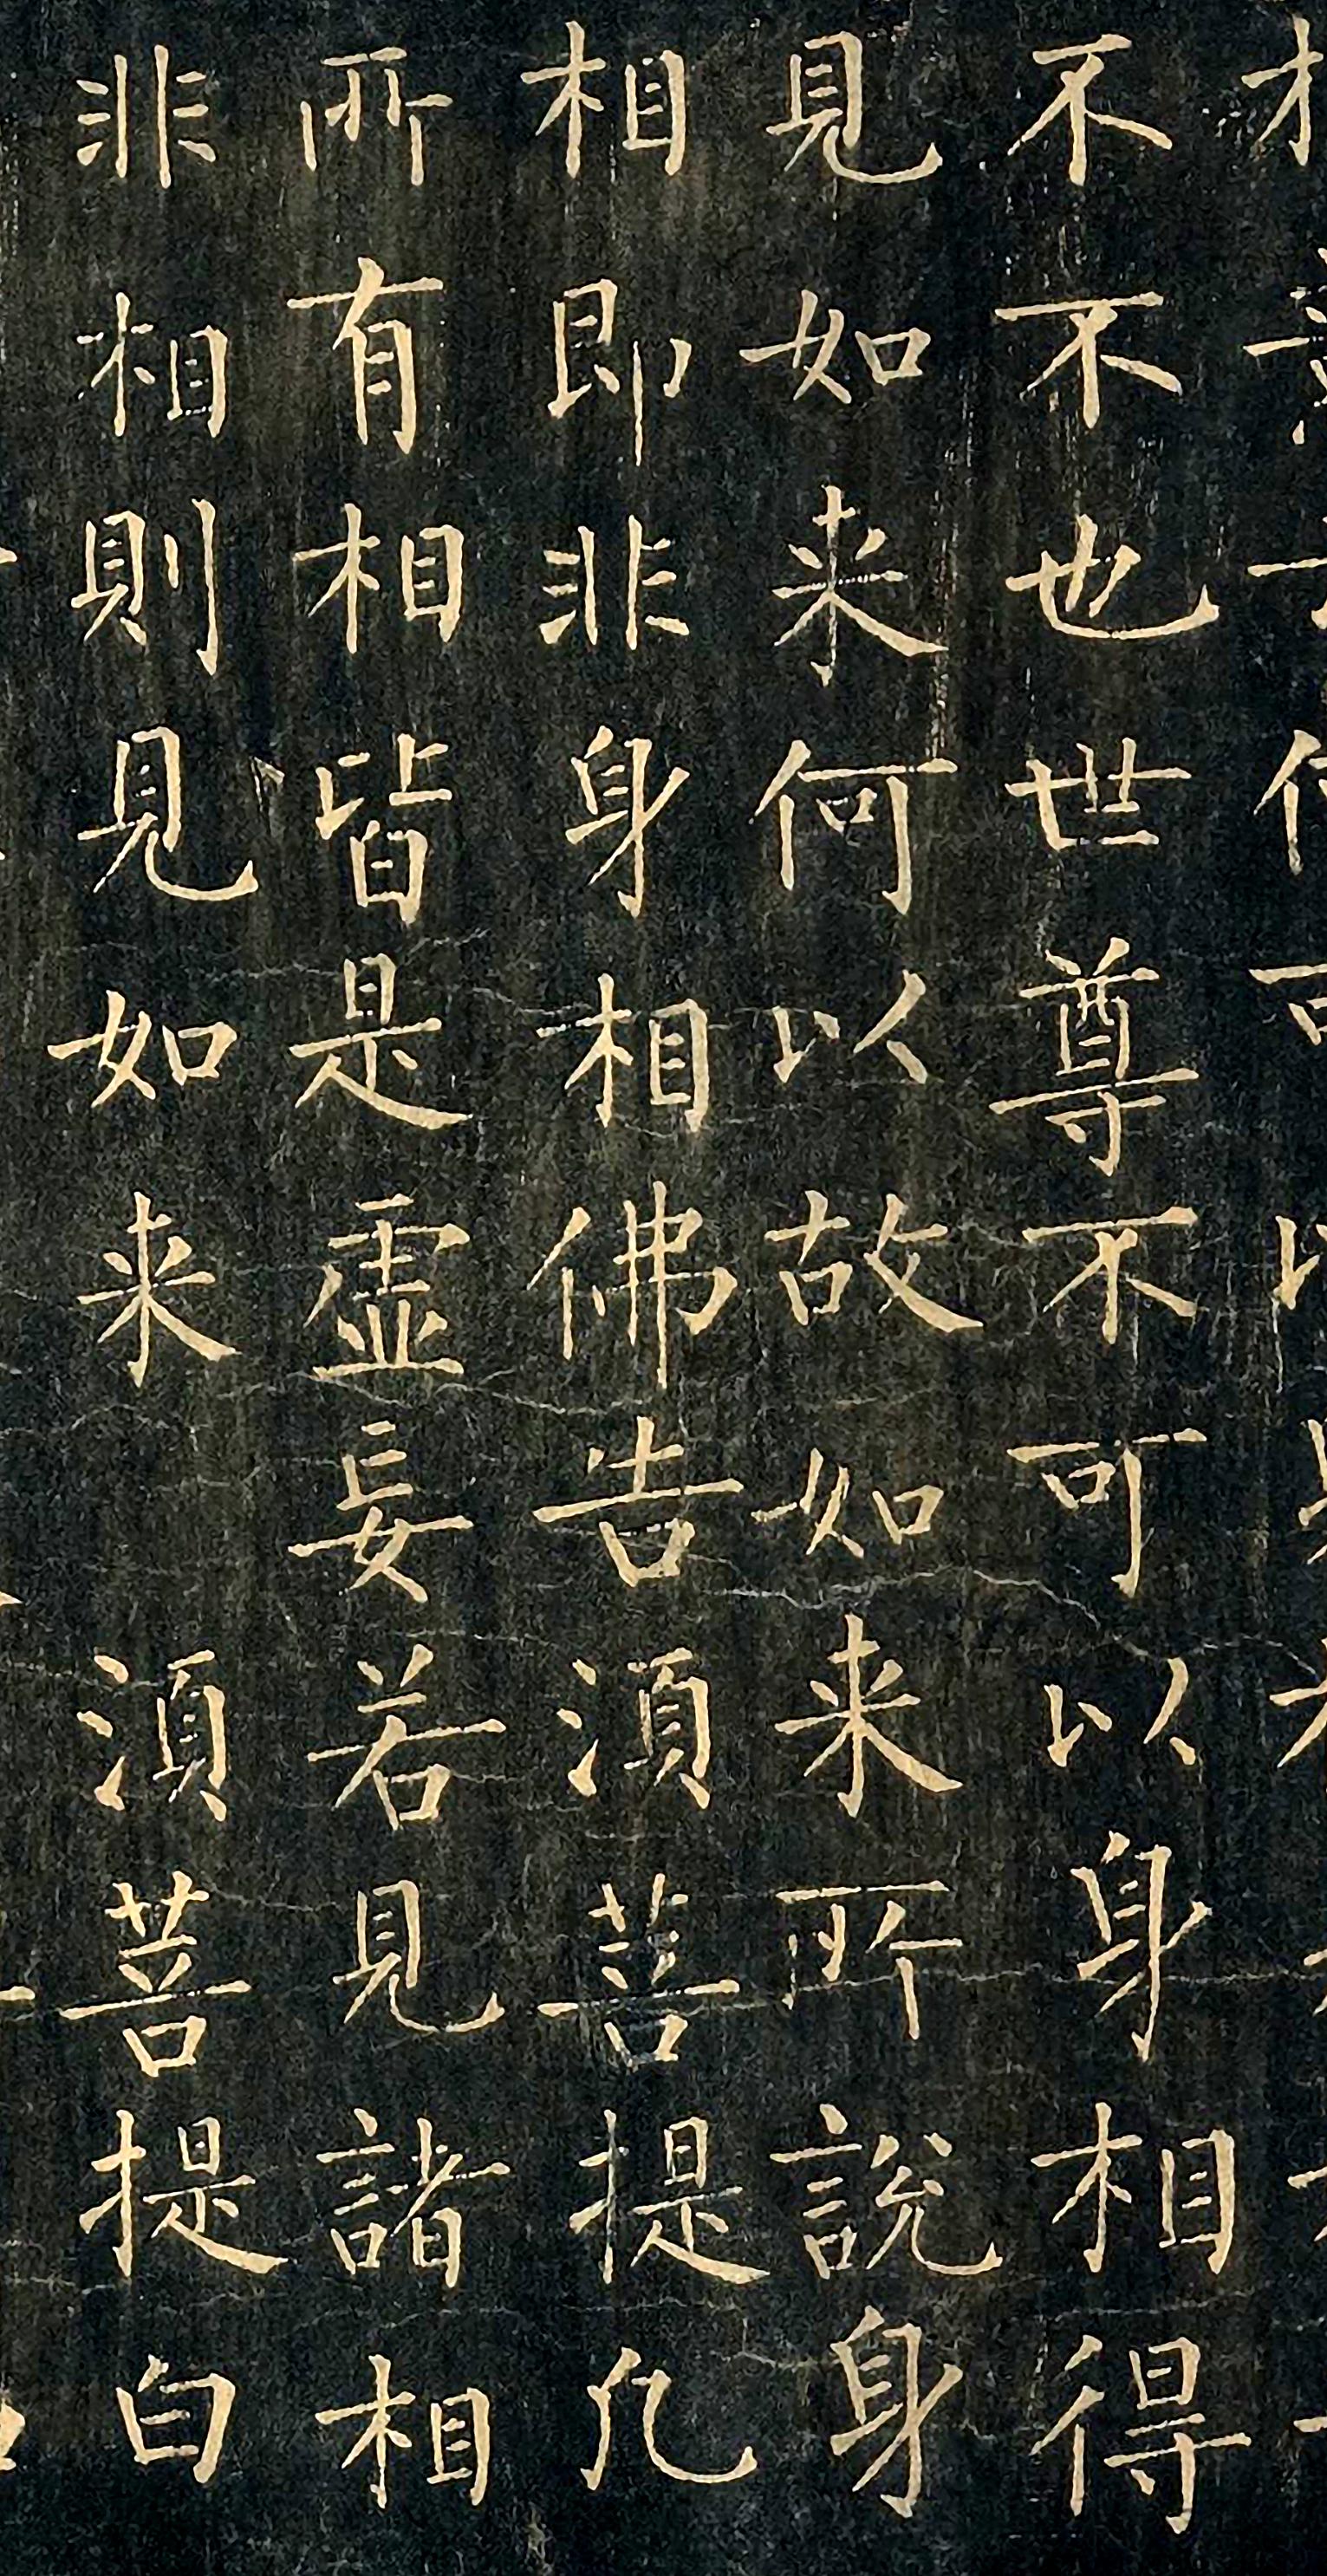 不不也世尊不可以身相得
見如来何以故如来所說身
相即非身相佛告湏菩提凡
所有相皆是虛妄若見諸相
非相則見如来 湏菩提白